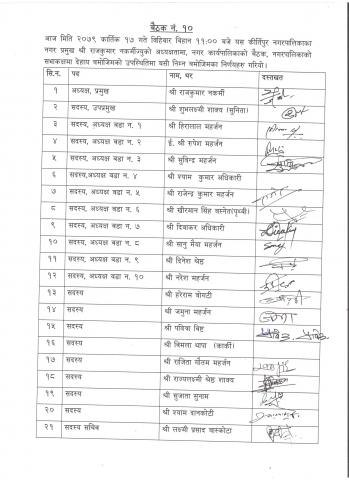 बैठक नं. १०
आज मिति २०७९ कार्तिक १७ गते विहिबार बिहान ११:०० बजे यस कीर्तिपुर नगरपालिकाका
नगर प्रमुख श्री राजकुमार नकर्मीज्यूको अध्यक्षतामा, नगर कार्यपालिकाको बैठक, नगरपालिकाको
सभाकक्षमा देहाय बमोजिमको उपस्थितिमा बसी निम्न बमोजिमका निर्णयहरु गरियो।
सि.नं. पद नाम, थर दस्तखत
१ अध्यक्ष, प्रमुख श्री राजकुमार नकर्मी
२ सदस्य, उपप्रमुख श्री शुभलक्ष्मी शाक्य (सुनिता)
३ सदस्य, अध्यक्ष वडा नं. १ श्री हिरालाल महर्जन
४ सदस्य, अध्यक्ष वडा नं. २ ई. श्री रुपेश महर्जन
५ सदस्य, अध्यक्ष वडा नं. ३ श्री सुविन्द्र महर्जन
६ सदस्य,अध्यक्ष वडा नं. ४ श्री श्याम कुमार अधिकारी
७ सदस्य, अध्यक्ष वडा नं. ५ श्री राजेन्द्र कुमार महर्जन
८ सदस्य, अध्यक्ष वडा नं. ६ श्री खीरमान सिंह बस्नेत(पृथ्वी)
९ सदस्य, अध्यक्ष वडा नं. ७ श्री दिवाकर अधिकारी
१० सदस्य, अध्यक्ष वडा नं. ८ श्री सानु मैया महर्जन
११ सदस्य, अध्यक्ष वडा नं. ९ श्री दिनेश श्रेष्ठ
१२ सदस्य, अध्यक्ष वडा नं. १० श्री नरेश महर्जन
१३ सदस्य श्री हरेराम बोगटी
१४ सदस्य श्री जमुना महर्जन
१५ सदस्य श्री पवित्रा बिष्ट
१६ सदस्य श्री बिमला थापा (कार्की)
१७ सदस्य श्री राजिता गौतम महर्जन
१८ सदस्य श्री राज्यलक्ष्मी श्रेष्ठ शाक्य
१९ सदस्य श्री सुजाता सुनाम
२० सदस्य श्री श्याम दानकोटी
२१ सदस्य सचिव श्री लक्ष्मी प्रसाद बास्कोटा